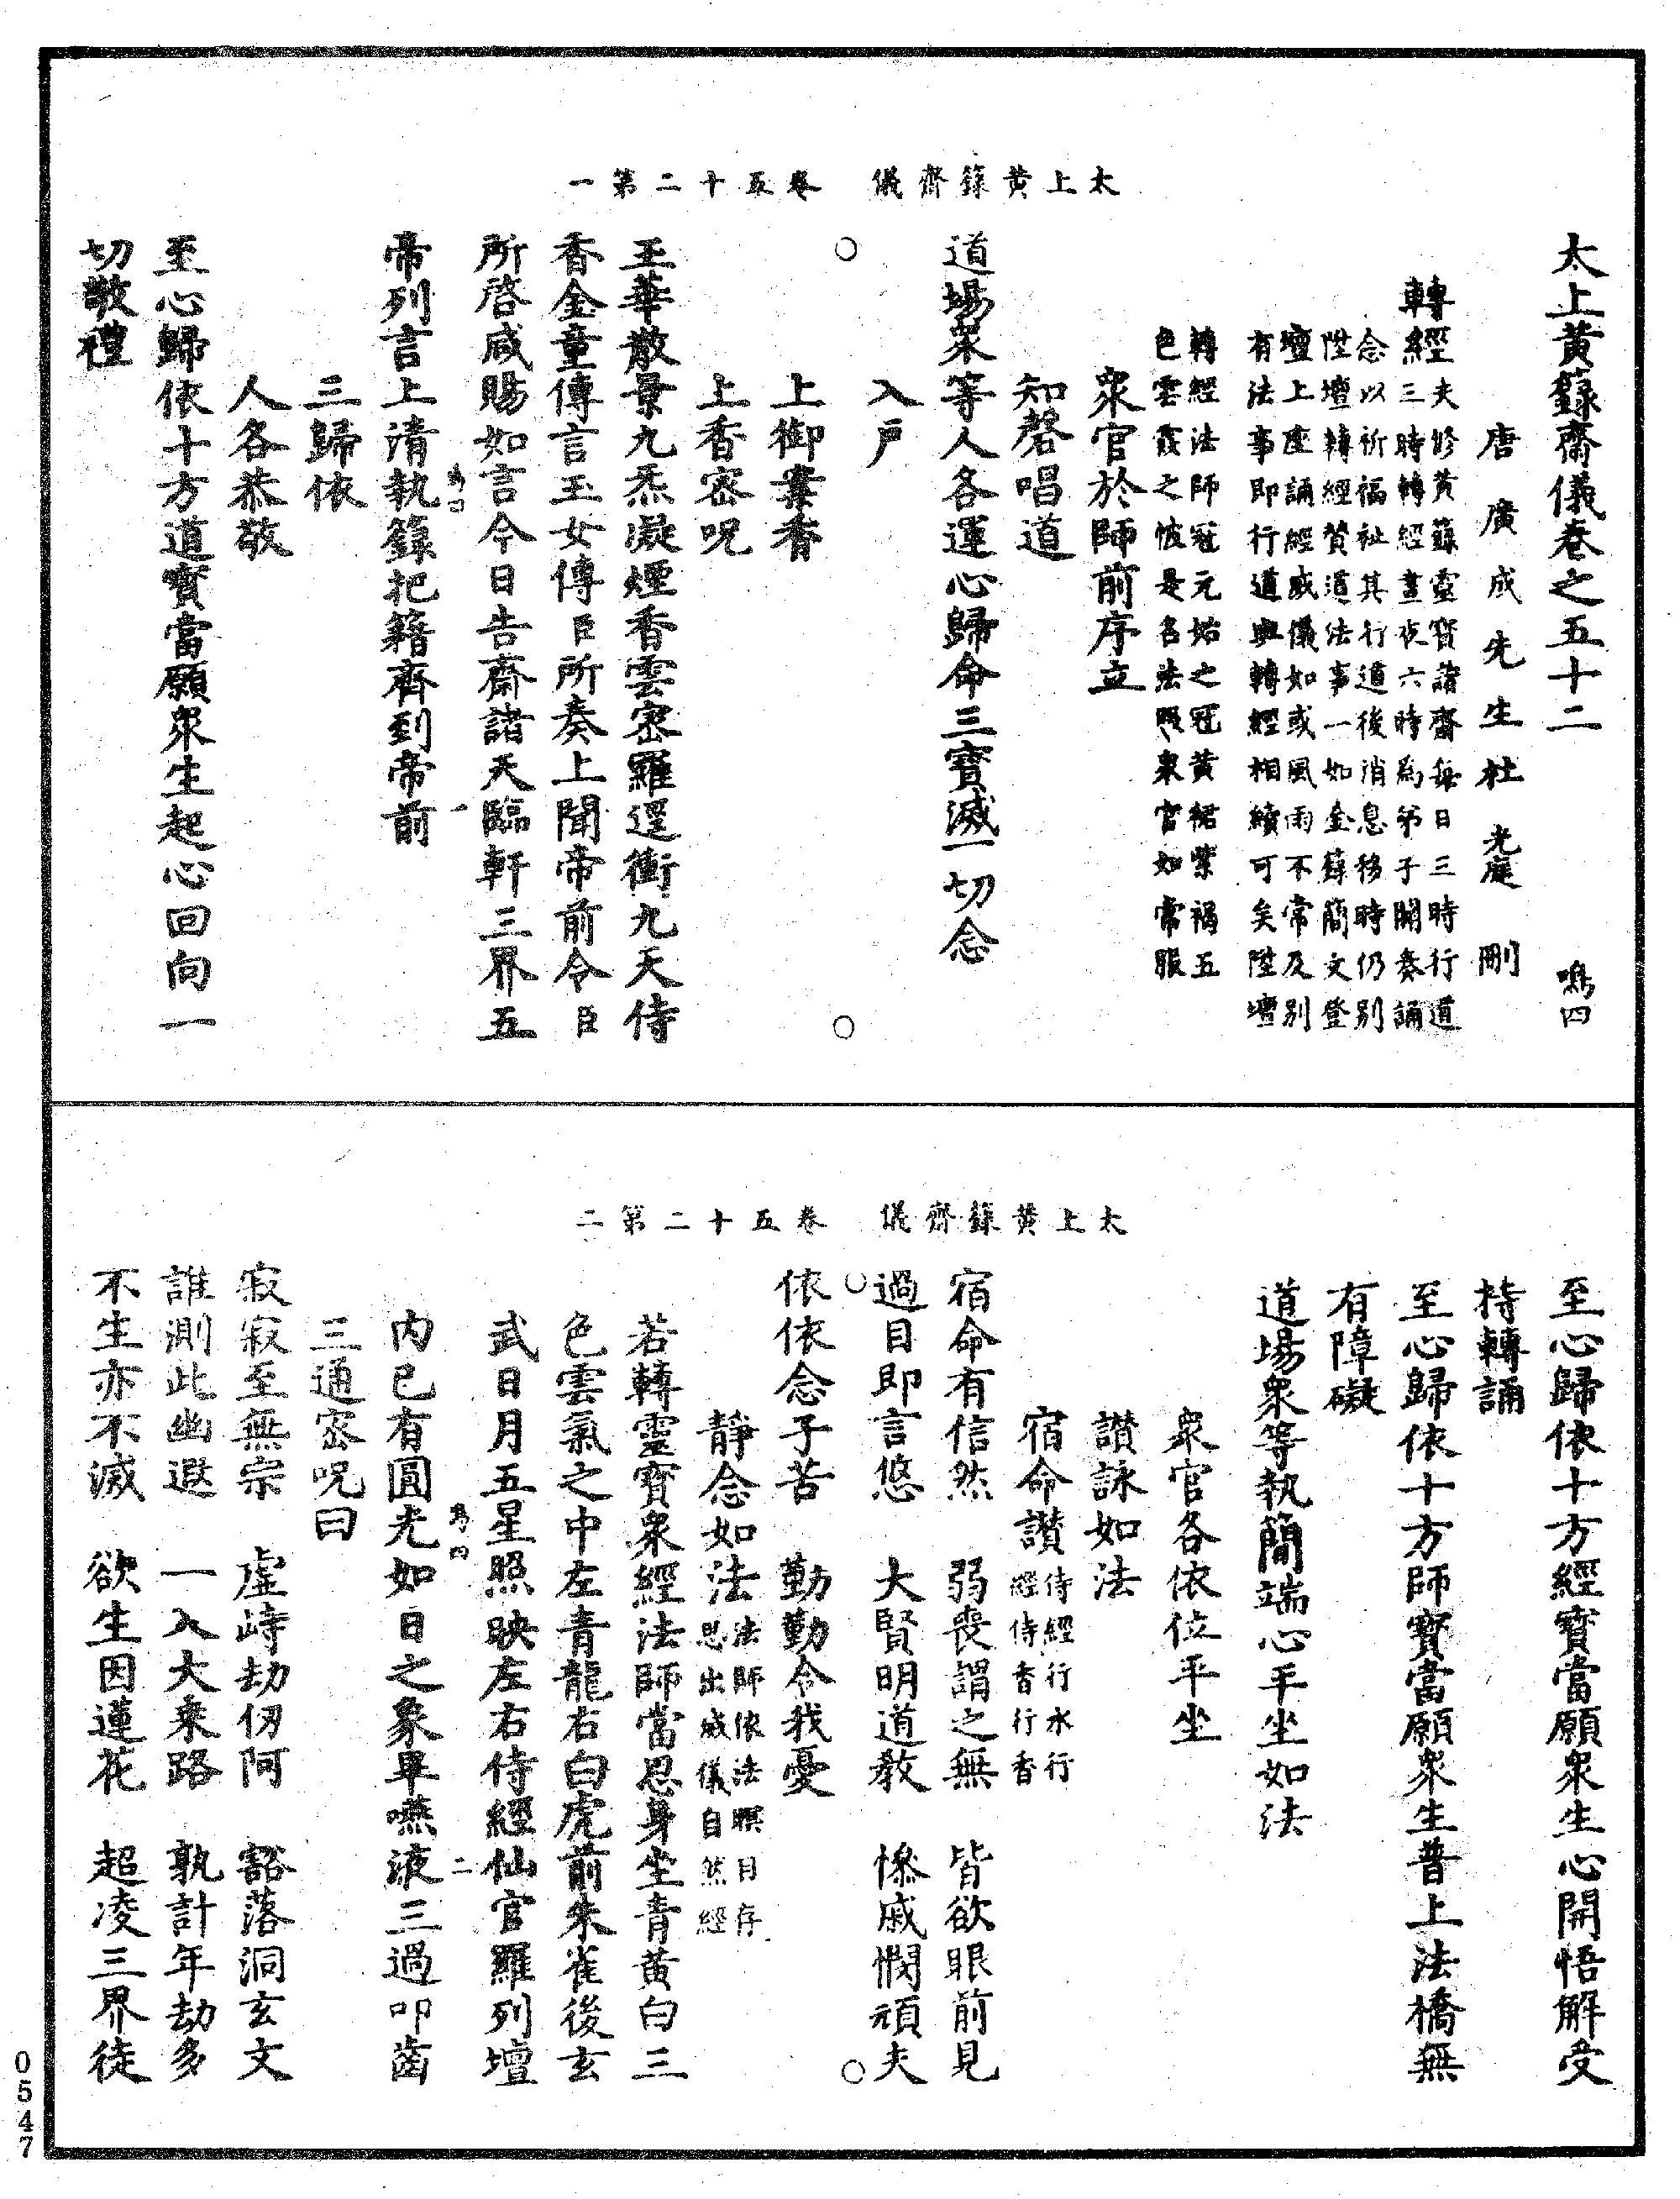 太上黃籙齋儀　卷五十二第一
太上黃籙齋儀卷之五十二　鳴四
唐廣成先生杜光庭刪
轉經夫修黃籙靈寶諸齋每日三時行道
三時轉經晝夜六時為弟子開奏誦
念以祈福祉其行道後消息移時仍別
陞壇轉經贊道法事一如金籙簡文登
壇上座誦經威儀如或風雨不常及別
有法事即行道與轉經相續可矣陞壇
轉經法師冠元始之冠黃裙紫褐五
色雲霞之帔是名法服衆官如常服
衆官於師前序立
知磬唱道
道場衆等人各運心歸命三寶滅一切念
入戶
上御案香
上香密呪
玉華散景九炁凝煙香雲密羅逕衝九天侍
香金童傳言玉女傳臣所奏上聞帝前令臣
所啓咸賜如言今日告齋諸天臨軒三界五
帝列言上清執籙把籍齊到帝前
鳴四　一
三歸依
人各恭敬
至心歸依十方道寶當願衆生起心回向一
切敬禮
太上黃籙齋儀　卷五十二第二
至心歸依十方經寶當願衆生心開悟解受
持轉誦
至心歸依十方師寶當願衆生普上法橋無
有障礙
道場衆等執簡端心平坐如法
衆官各依位平坐
讃詠如法
宿命讃侍經行水行
經侍香行香
宿命有信然　弱喪謂之無　皆欲眼前見
過目即言悠　大賢明道教　慘戚憫頑夫
依依念子苦　勤勤令我憂
靜念如法法師依法瞑目存
思出威儀自然經
若轉靈寶衆經法師當思身坐青黃白三
色雲氣之中左青龍右白虎前朱雀後玄
武日月五星照映左右侍經仙官羅列壇
內已有圓光如日之象畢嚥液三過叩齒
鳴四　二
三通密呪曰
寂寂至無宗　虛峙劫仞阿　豁落洞玄文
誰測此幽遐　一入大乘路　孰計年劫多
不生亦不滅　欲生因蓮花　超凌三界徒
0547